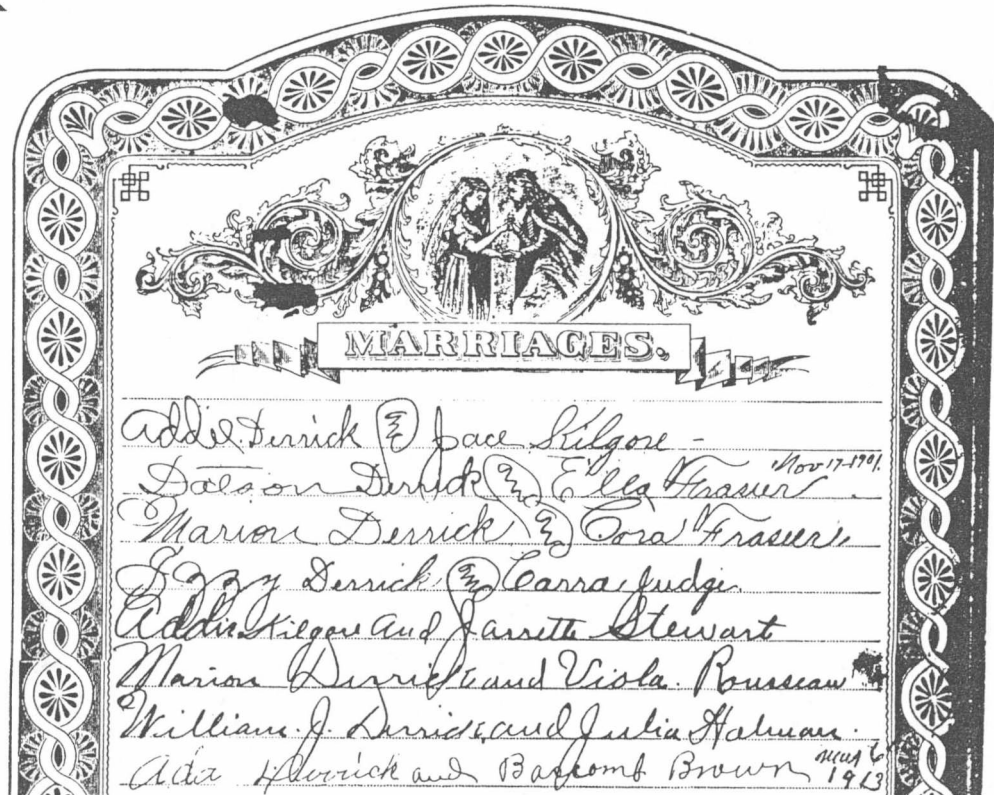 MARRIAGES.
Addie Derrick & Jace Kilgore -
Dotson Derrick & Ella Frasier Nov 17-1901.
Marion Derrick & Cora Frasier
Izzy Derrick & Carra Judge.
Addie Kilgore and Jarrette Stewart
Marion Derrick and Viola Rousseau
William. J. Derrick and Julia Holman.
Ada Derrick and Bascomb Brown 1913